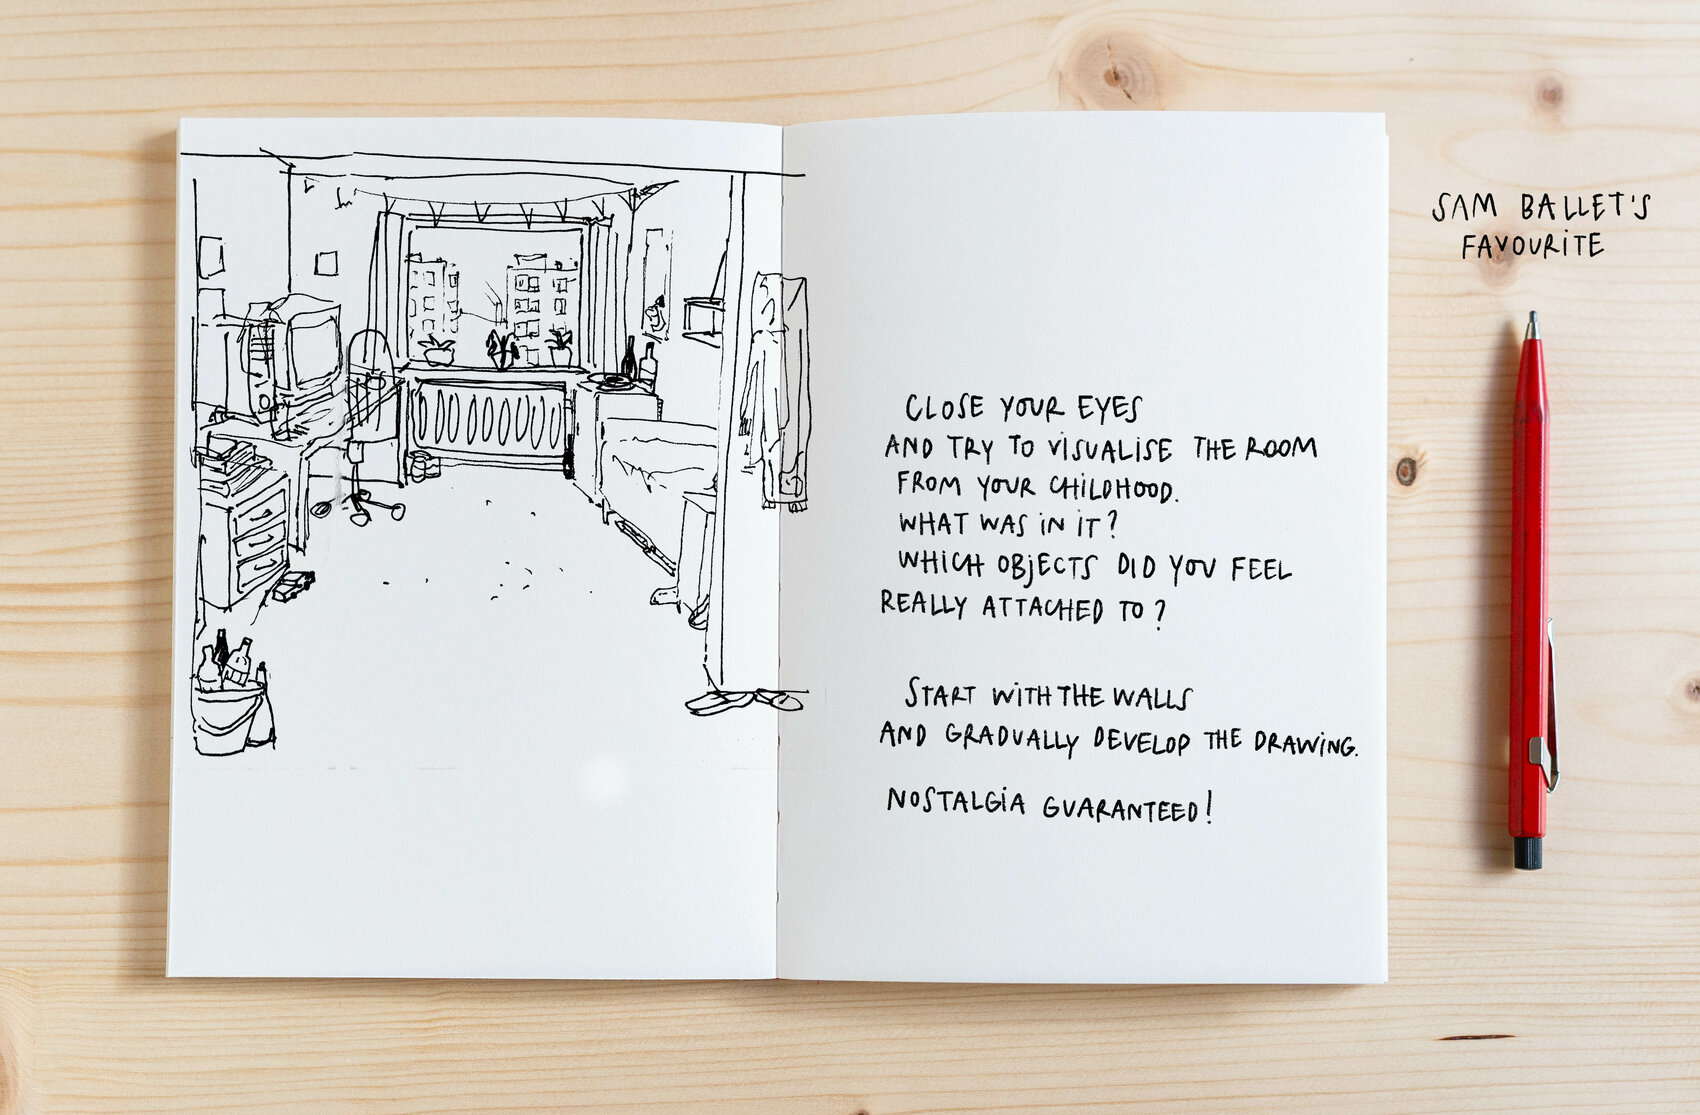 CLOSE YOUR EYES
AND TRY TO VISUALISE THE ROOM
FROM YOUR CHILDHOOD.
WHAT WAS IN IT?
WHICH OBJECTS DID YOU FEEL
REALLY ATTACHED TO?
START WITH THE WALLS
AND GRADUALLY DEVELOP THE DRAWING.
NOSTALGIA GUARANTEED!
SAM BALLET'S
FAVOURITE